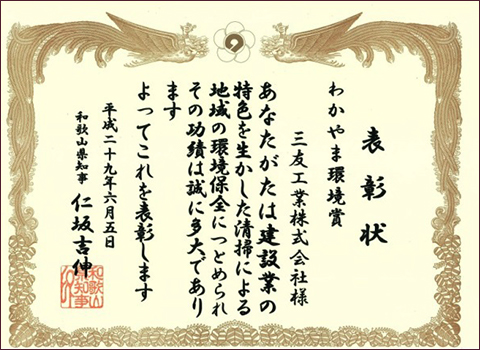 表彰状
わかやま環境賞
三友工業株式会社様
あなたがたは建設業の
特色を生かした清掃による
地域の環境保全につとめられ
その功績は誠に多大であり
ます
よってこれを表彰します
平成二十九年六月五日
和歌山県知事 仁坂吉伸
和歌山
県知事
之印